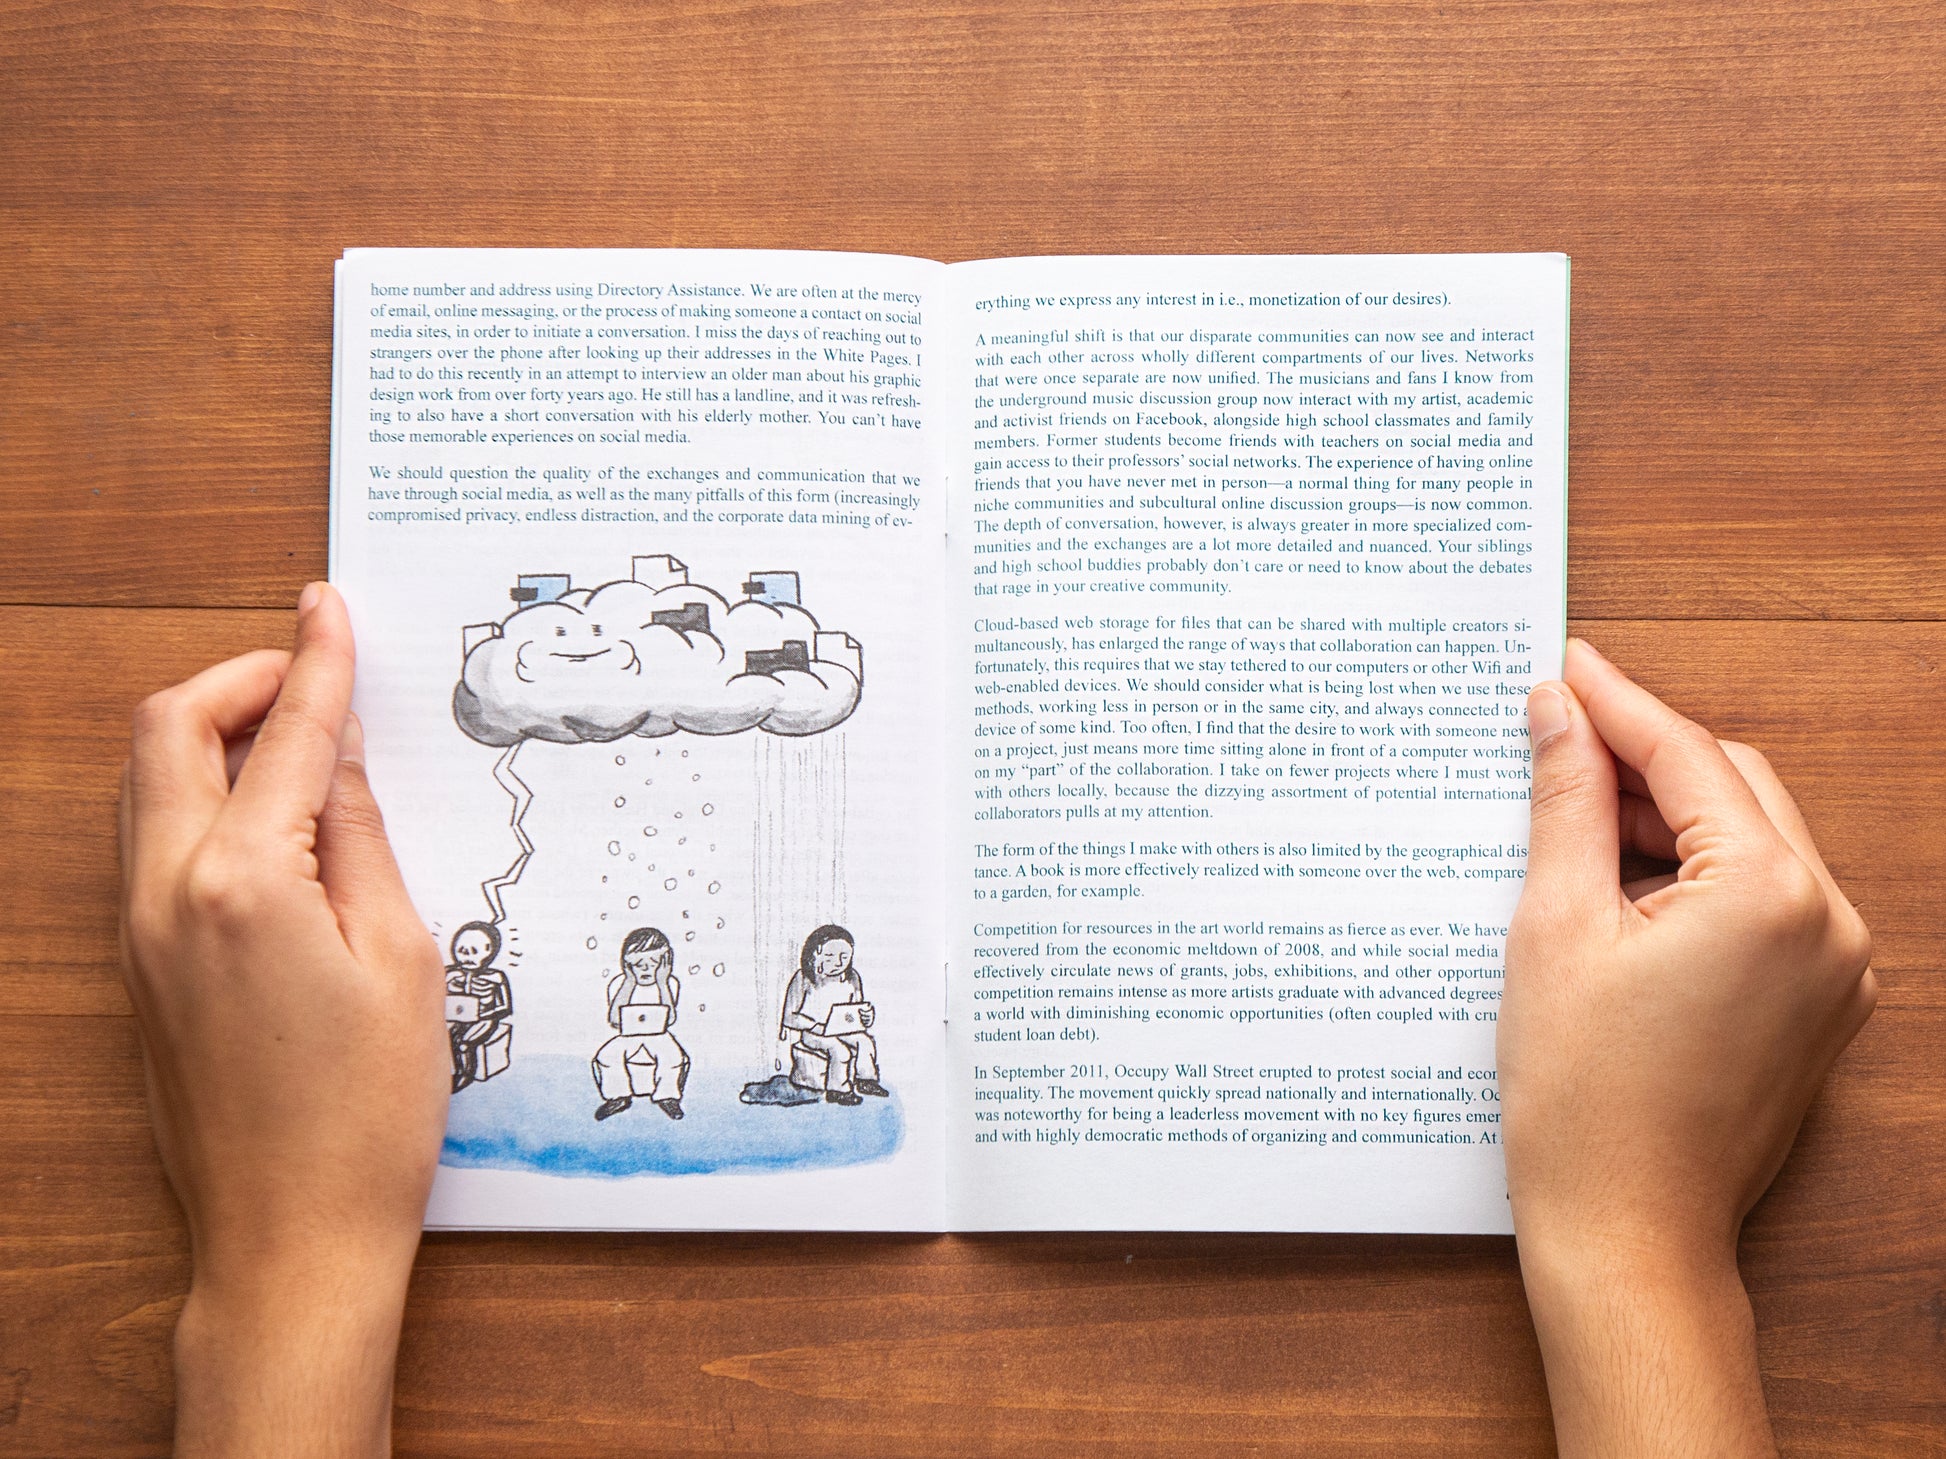 home number and address using Directory Assistance. We are often at the mercy
of email, online messaging, or the process of making someone a contact on social
media sites, in order to initiate a conversation. I miss the days of reaching out to
strangers over the phone after looking up their addresses in the White Pages. I
had to do this recently in an attempt to interview an older man about his graphic
design work from over forty years ago. He still has a landline, and it was refresh-
ing to also have a short conversation with his elderly mother. You can't have
those memorable experiences on social media.
We should question the quality of the exchanges and communication that we
have through social media, as well as the many pitfalls of this form (increasingly
compromised privacy, endless distraction, and the corporate data mining of ev-
erything we express any interest in i.e., monetization of our desires).
A meaningful shift is that our disparate communities can now see and interact
with each other across wholly different compartments of our lives. Networks
that were once separate are now unified. The musicians and fans I know from
the underground music discussion group now interact with my artist, academic
and activist friends on Facebook, alongside high school classmates and family
members. Former students become friends with teachers on social media and
gain access to their professors' social networks. The experience of having online
friends that you have never met in person—a normal thing for many people in
niche communities and subcultural online discussion groups—is now common.
The depth of conversation, however, is always greater in more specialized com-
munities and the exchanges are a lot more detailed and nuanced. Your siblings
and high school buddies probably don't care or need to know about the debates
that rage in your creative community.
Cloud-based web storage for files that can be shared with multiple creators si-
multaneously, has enlarged the range of ways that collaboration can happen. Un-
fortunately, this requires that we stay tethered to our computers or other Wifi and
web-enabled devices. We should consider what is being lost when we use these
methods, working less in person or in the same city, and always connected to a
device of some kind. Too often, I find that the desire to work with someone new
on a project, just means more time sitting alone in front of a computer working
on my "part" of the collaboration. I take on fewer projects where I must work
with others locally, because the dizzying assortment of potential international
collaborators pulls at my attention.
The form of the things I make with others is also limited by the geographical dis-
tance. A book is more effectively realized with someone over the web, compare
to a garden, for example.
Competition for resources in the art world remains as fierce as ever. We have
recovered from the economic meltdown of 2008, and while social media
effectively circulate news of grants, jobs, exhibitions, and other opportuni
competition remains intense as more artists graduate with advanced degrees
a world with diminishing economic opportunities (often coupled with cru
student loan debt).
In September 2011, Occupy Wall Street erupted to protest social and econ
inequality. The movement quickly spread nationally and internationally. Oc
was noteworthy for being a leaderless movement with no key figures emer
and with highly democratic methods of organizing and communication. At